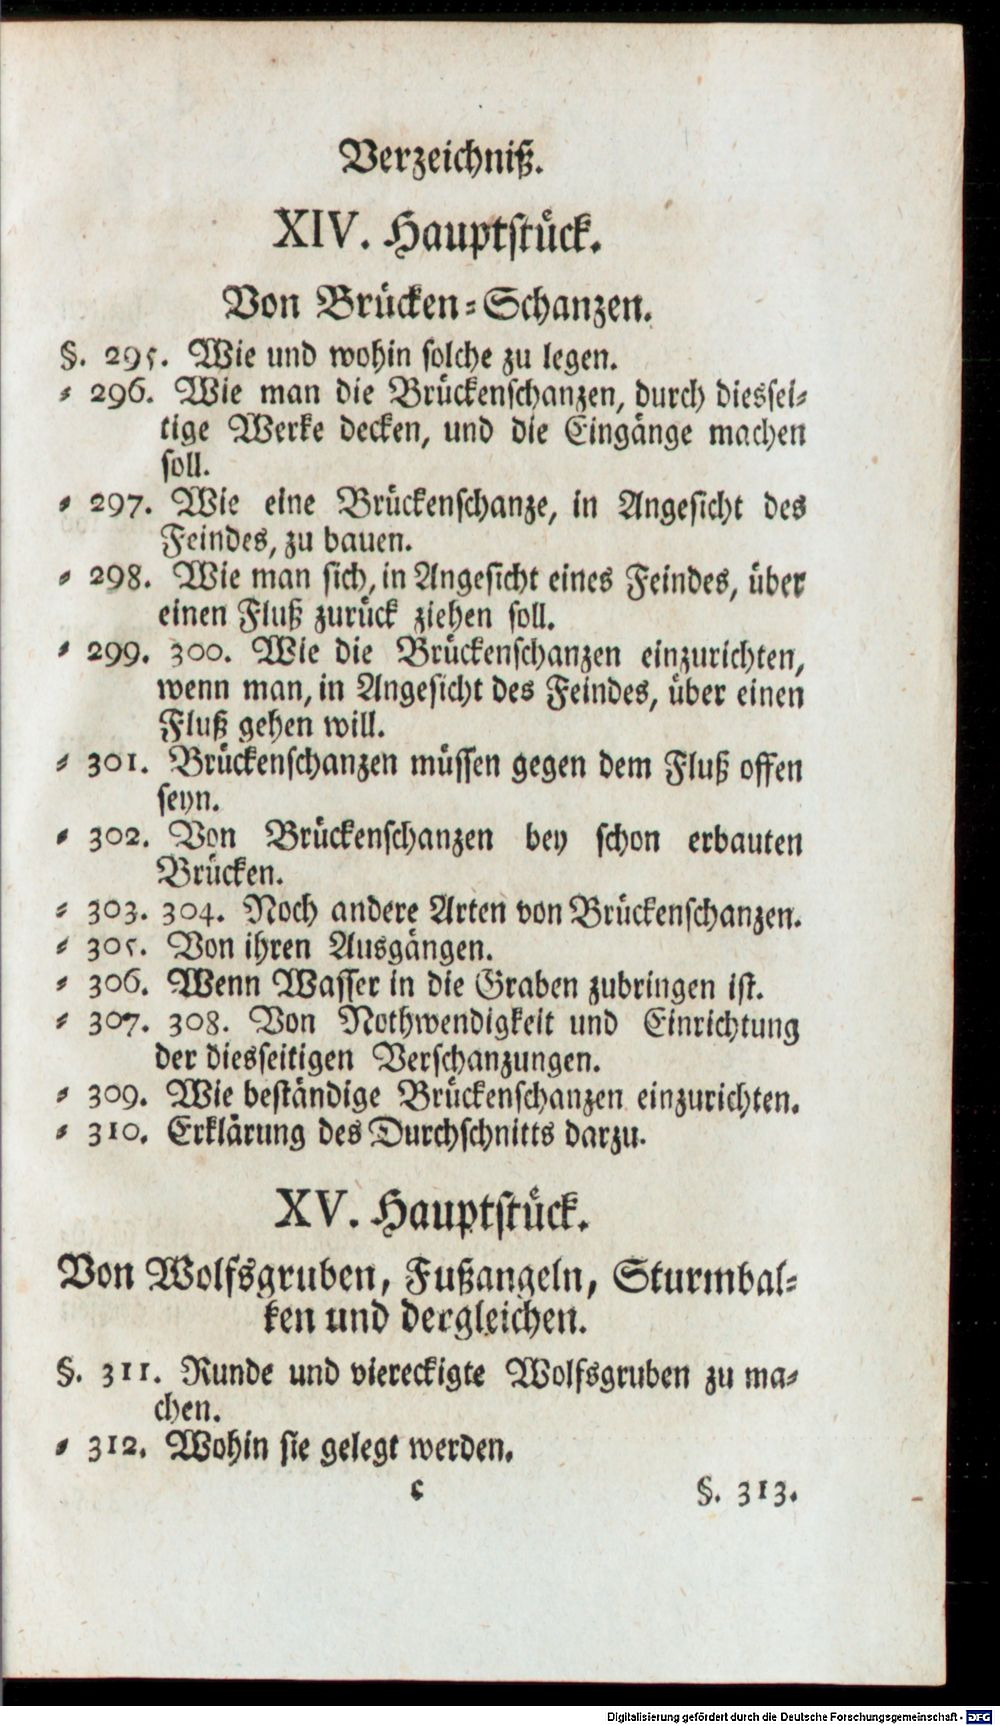 Verzeichniß.
XIV. Hauptstück.
Von Brücken-Schanzen.
§. 295. Wie und wohin solche zu legen.
⸗ 296. Wie man die Brückenschanzen, durch diessei⸗
tige Werke decken, und die Eingänge machen
soll.
⸗ 297. Wie eine Brückenschanze, in Angesicht des
Feindes, zu bauen.
⸗ 298. Wie man sich, in Angesicht eines Feindes, über
einen Fluß zurück ziehen soll.
⸗ 299. 300. Wie die Brückenschanzen einzurichten,
wenn man, in Angesicht des Feindes, über einen
Fluß gehen will.
⸗ 301. Brückenschanzen müssen gegen dem Fluß offen
seyn.
⸗ 302. Von Brückenschanzen bey schon erbauten
Brücken.
⸗ 303. 304. Noch andere Arten von Brückenschanzen.
⸗ 305. Von ihren Ausgängen.
⸗ 306. Wenn Wasser in die Graben zubringen ist.
⸗ 307. 308. Von Nothwendigkeit und Einrichtung
der diesseitigen Verschanzungen.
⸗ 309. Wie beständige Brückenschanzen einzurichten.
⸗ 310. Erklärung des Durchschnitts darzu.
XV. Hauptstück.
Von Wolfsgruben, Fußangeln, Sturmbal⸗
ken und dergleichen.
§. 311. Runde und viereckigte Wolfsgruben zu ma⸗
chen.
⸗ 312. Wohin sie gelegt werden.
c §. 313.
Digitalisierung gefördert durch die Deutsche Forschungsgemeinschaft - DFG